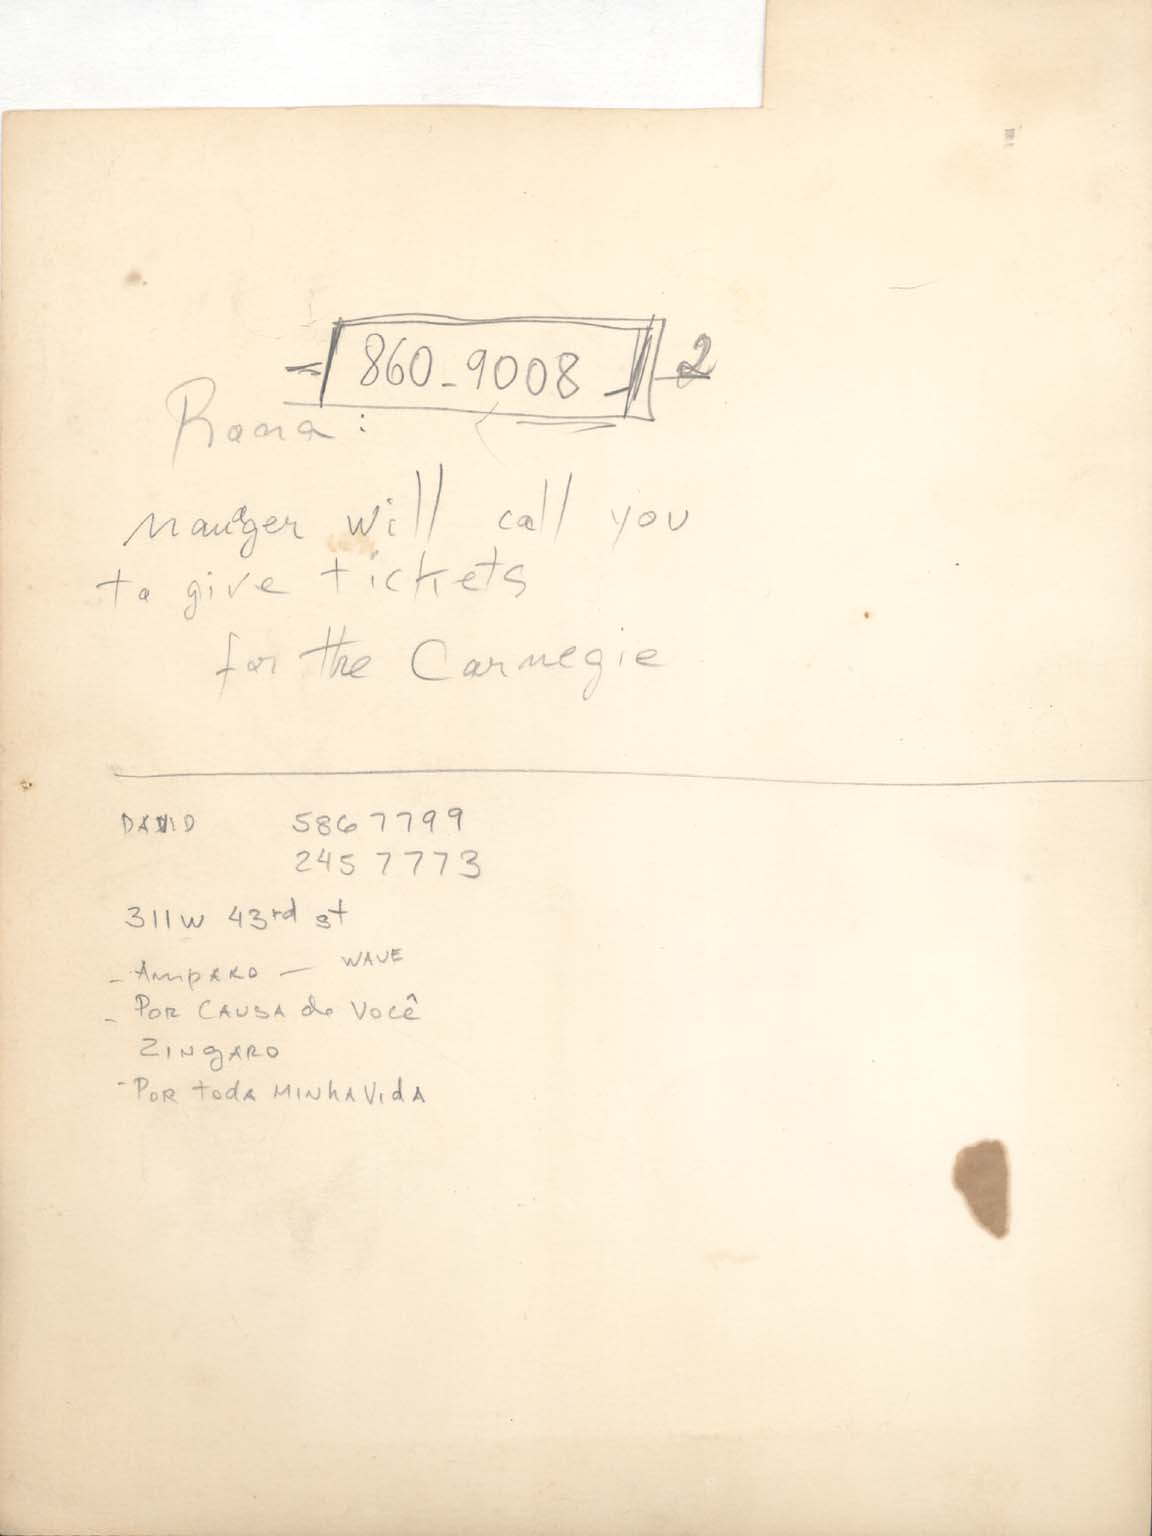 860-9008 - 2
Roma:
manager will call you
to give tickets
for the Carnegie
DAVID 586 7799
245 7773
311W 43rd st
- AmpARO — WAVE
- POR CAUSA de Você
ZINgARO
- POR todA MINhA VidA